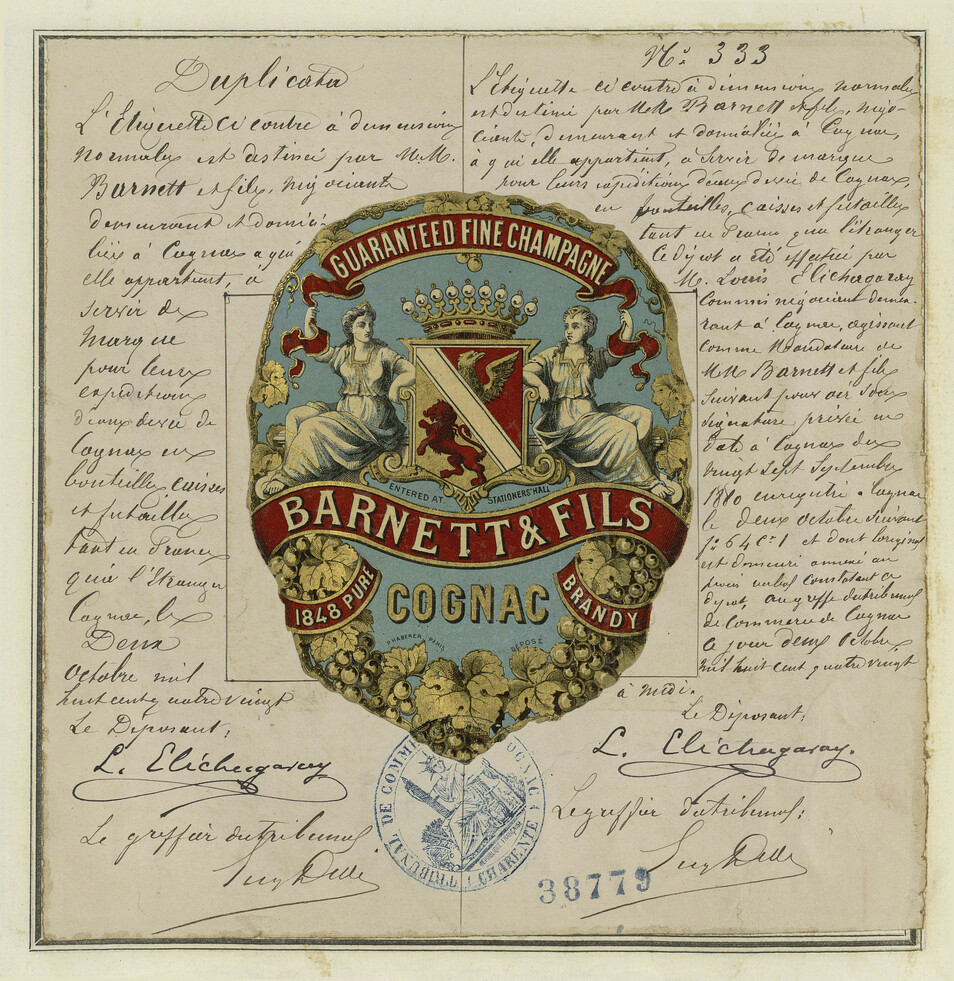 Duplicata
L'Etiquette ci contre à dimensions
normales est destinée par M.M.
Barnett et fils, négociants
demeurant et domici
liés à Cognac à qui
elle appartient, à
servir de
marque
pour leurs
expéditions
d'eaux de vie de
Cognac en
bouteilles caisses
et futailles
tant en France
qu'à l'Etranger
Cognac, les
Deux
Octobre mil
huit cent quatre vingt
Le Déposant;
L. Elichagaray
Le greffier du tribunal
N° 333
L'Etiquette ci contre à dimensions normales
est destinée par M.M. Barnett et fils, négo-
ciants, demeurant et domiciliés à Cognac,
à qui elle appartient, à servir de marque
pour leurs expéditions d'eaux de vie de Cognac,
en bouteilles, caisses et futailles
tant en France qu'à l'étranger
Ce dépot a été effectué par
M. Louis Elichagaray
Commis négociant demeu-
rant à Cognac, agissant
comme Mandataire de
M.M. Barnett et fils
suivant pouvoir sous
signature privée en
date à Cognac du
vingt sept Septembre
1880 enregistré à Cognac
le deux octobre suivant
f° 64 C. 1 et dont l'original
est demeuré annexé au
procès verbal constatant ce
dépot, au greffe du tribunal
de Commerce de Cognac
ce jour deux Octobre
mil huit cent quatre vingt
à midi.
Le Déposant;
L. Elichagaray.
Le greffier du tribunal;
GUARANTEED FINE CHAMPAGNE
ENTERED AT STATIONERS' HALL
BARNETT & FILS
1848 PURE BRANDY
COGNAC
P. HABERER PARIS DÉPOSÉ
TRIBUNAL DE COMM COGNAC (CHARENTE)
38779